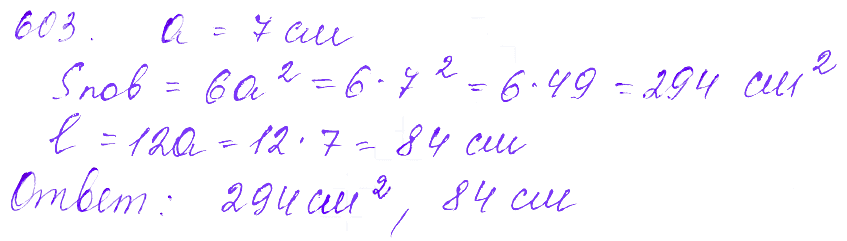 603. a = 7 см
Sпов = 6a² = 6·7² = 6·49 = 294 см²
l = 12a = 12·7 = 84 см
Ответ: 294 см², 84 см